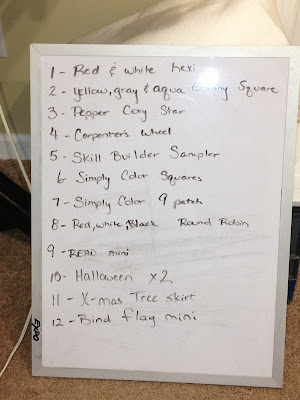 1 - Red & white hexi
2 - Yellow, gray & aqua Granny Square
3 - Pepper Cory Star
4 - Carpenter's Wheel
5 - Skill Builder Sampler
6 Simply Color Squares
7 - Simply Color 9 patch
8 - Red, white, Black Round Robin
9 - READ mini
10 - Halloween x2
11 - X-mas Tree skirt
12 - Bind flag mini
EXPO